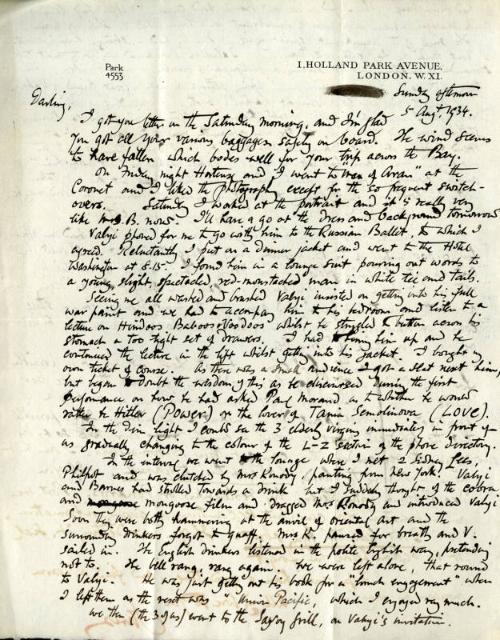 Park
4553
1, HOLLAND PARK AVENUE,
LONDON. W. XI.
Sunday afternoon
5 Aug. 1934.
Darling,
I got your letter on the Saturday morning, and I'm glad
you got all your various baggages safely on board. The wind seems
to have fallen which bodes well for your trip across the Bay.
On Friday night Hortense and I went to "Man of Aran" at the
Coronet and I liked the photography except for the too frequent switch-
overs. Saturday I worked at the portrait and it is really very
like Mrs B. now. I'll have a go at the dress and background tomorrow
Valyi phoned for me to go with him to the Russian Ballet, to which I
agreed. Reluctantly I put on a dinner jacket and went to the Hotel
Washington at 8.15. I found him in a lounge suit pouring out words to
a young, slight, spectacled, red-moustached man in white tie and tails.
Seeing me all washed and brushed Valyi insisted on getting into his full
war paint and we had to accompany him to his bedroom and listen to a
lecture on Hindoos Baboos Voodoos whilst he struggled to button across his
stomach a too tight set of drawers. I had to hurry him up and he
continued the lecture in the lift whilst getting into his jacket. I bought my
own ticket of course. As there was a small audience I got a seat next him,
but began to doubt the wisdom of this as he discoursed during the first
performance on how he had asked Paul Morand as to whether he would
rather be Hitler (POWER) or the lover of Tania Semolinova (LOVE).
In the dim light I could see the 3 elderly virgins immediately in front of
us gradually changing to the colour of the L-Z section of the phone directory.
In the interval we went to the lounge where I met 2 Sidney Lees,
Philpot and was clutched by Mrs Konody, panting from New York. Valyi
and Barnes had strolled towards a drink but I suddenly thought of the cobra
and mongoose film and dragged Mrs Konody and introduced Valyi
Soon they were both hammering at the anvil of oriental art and the
surrounding drinkers forgot to quaff. Mrs K. paused for breath and V.
sailed in. The English drinkers listened in the polite English way, pretending
not to. The bell rang, rang again. We were left alone, that round
to Valyi. He was just getting out his book for a "lunch engagement" when
I left them as the next was "Union Pacific", which I enjoyed very much.
We then (the 3 of us) went to the Savoy Grill, on Valyi's invitation.